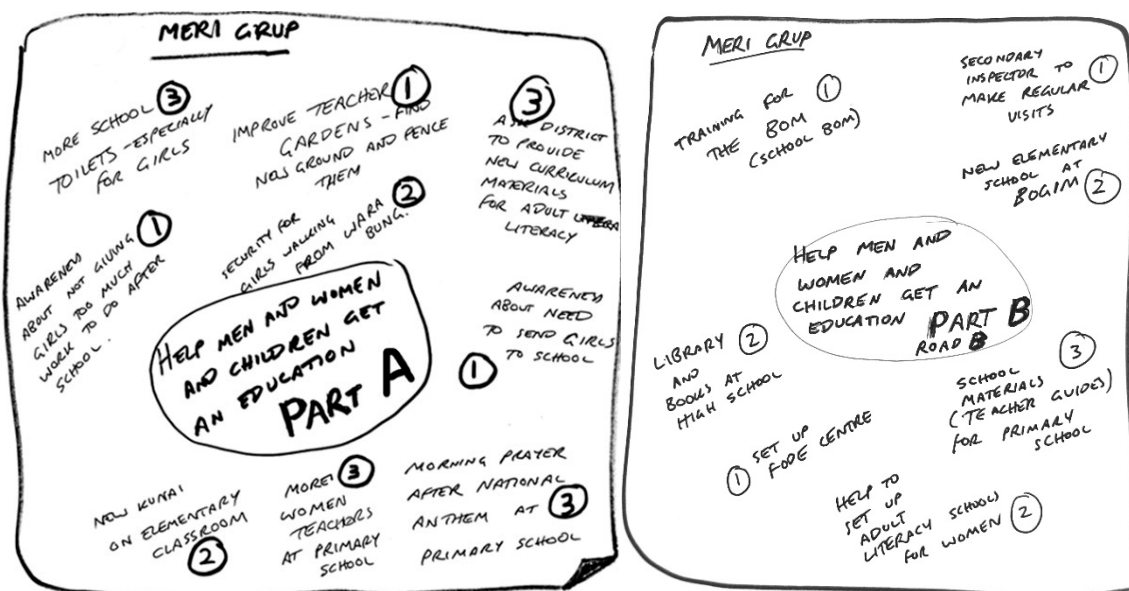 MERI GRUP
MORE SCHOOL 3
TOILETS - ESPECIALLY
FOR GIRLS
IMPROVE TEACHER 1
GARDENS - FIND
NEW GROUND AND FENCE
THEM
3
ASK DISTRICT
TO PROVIDE
NEW CURRICULUM
MATERIALS
FOR ADULT
LITERACY
AWARENESS 1
ABOUT NOT GIVING
GIRLS TOO MUCH
WORK TO DO AFTER
SCHOOL.
SECURITY FOR 2
GIRLS WALKING
FROM WARA
BUNG.
HELP MEN AND WOMEN
AND CHILDREN GET
AN EDUCATION
PART A
AWARENESS
ABOUT NEED
TO SEND GIRLS
TO SCHOOL
1
NEW KUNAI
ON ELEMENTARY
CLASSROOM
2
MORE 3
WOMEN
TEACHERS
AT PRIMARY
SCHOOL
MORNING PRAYER
AFTER NATIONAL
ANTHEM AT 3
PRIMARY SCHOOL
MERI GRUP
TRAINING FOR 1
THE BOM
(SCHOOL BOM)
SECONDARY
INSPECTOR TO
MAKE REGULAR 1
VISITS
NEW ELEMENTARY
SCHOOL AT
BOGIM 2
HELP MEN AND
WOMEN AND
CHILDREN GET AN
EDUCATION PART B
ROAD B
LIBRARY 2
AND
BOOKS AT
HIGH SCHOOL
3
SCHOOL
MATERIALS
(TEACHER GUIDES)
FOR PRIMARY
SCHOOL
1 SET UP
FODE CENTRE
HELP TO
SET UP
ADULT
LITERACY SCHOOLS
FOR WOMEN 2